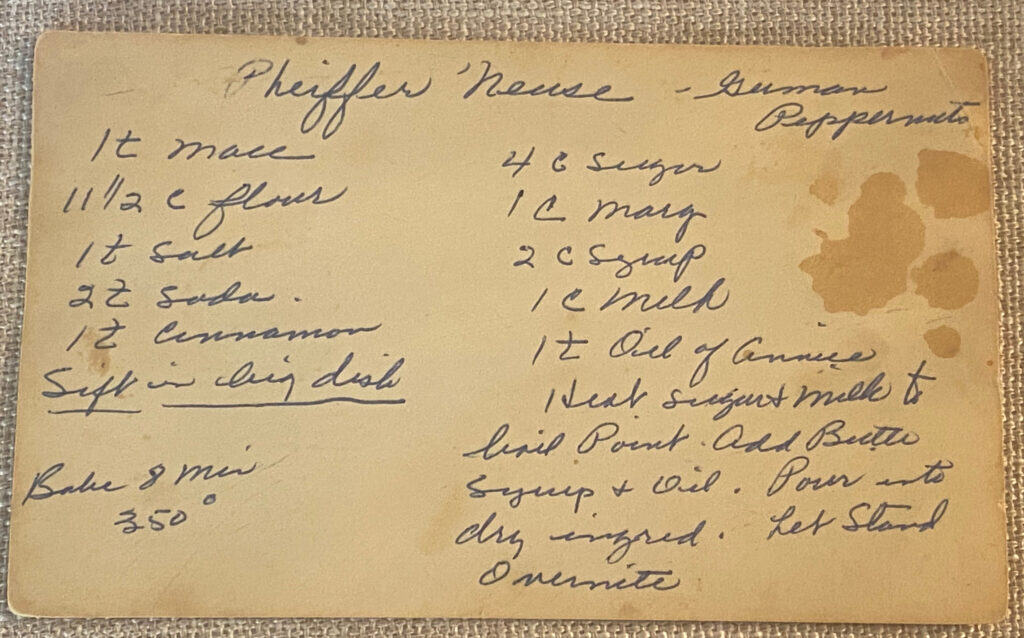 Pheiffer 'Neuse - German
Peppernuts
1t Mace
11 1/2 c flour
1t Salt
2t Soda.
1t Cinnamon
Sift in big dish
Bake 8 Min
350°
4 C Sugar
1 C Marg
2 C Syrup
1 C Milk
1t Oil of Annice
Heat sugar & Milk to
boil Point. Add Butter
Syrup + Oil. Pour into
dry ingred. Let Stand
Overnite